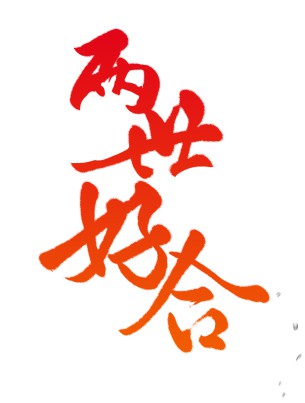 两世好合